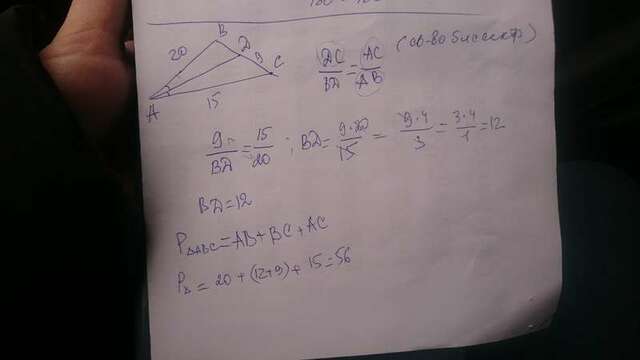 B
D
20
9
C
A
15
DC/BD = AC/AB (св-во биссектр)
9/BD = 15/20 ; BD = 9·20/15 = 9·4/3 = 3·4/1 = 12
BD = 12
P△ABC = AB + BC + AC
P△ = 20 + (12+9) + 15 = 56